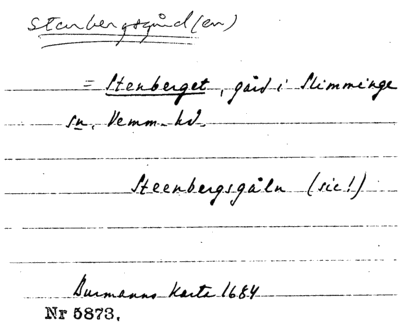 Stenbergsgård(en)
= Stenberget, gård i Slimminge
sn, Vemm. hd.
Steenbergsgåln (sic!)
Burmanns karta 1684
Nr 5873.